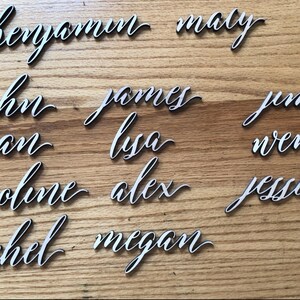 benjamin macy
hn james jun
an lisa wen
oline alex jess
hel megan